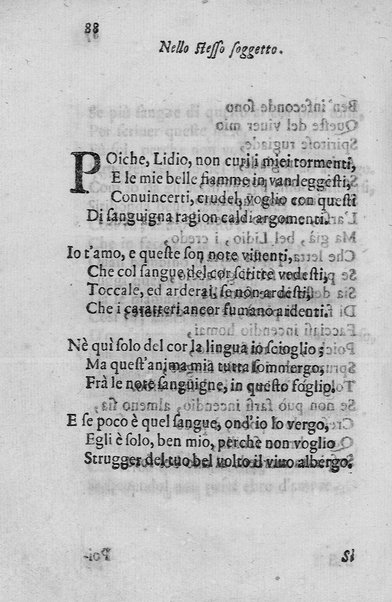 88
Nello stesso soggetto.
POiche, Lidio, non curi i miei tormenti,
E le mie belle fiamme in van leggesti,
Conuincerti, crudel, voglio con questi
Di sanguigna ragion caldi argomenti.
Io t'amo, e queste son note viuenti,
Che col sangue del cor scritte vedesti,
Toccale, ed arderai, se non ardesti,
Che i caratteri ancor fumano ardenti.
Nè quì solo del cor la lingua io scioglio;
Ma quest'anima mia tutta sommergo,
Frà le note sanguigne, in questo foglio.
E se poco è quel sangue, ond'io lo vergo,
Egli è solo, ben mio, perche non voglio
Strugger del tuo bel volto il viuo albergo.
Si